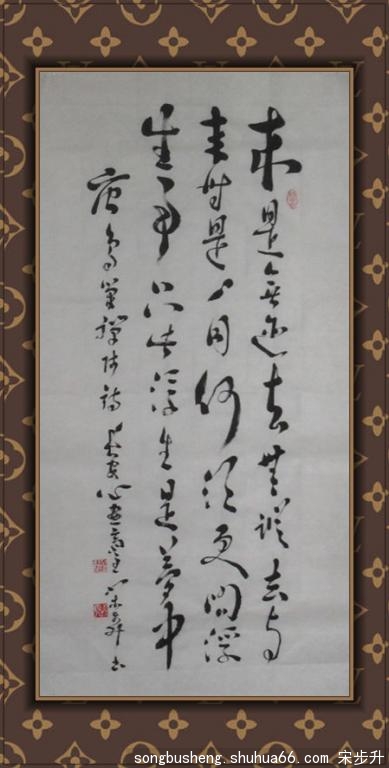 来是无迹去無踪去与
来时是一同何须更問浮
生事只此浮生是夢中
唐鸟窠禅师诗 长安心画斋主 宋步升书
songbusheng.shuhua66.com 宋步升